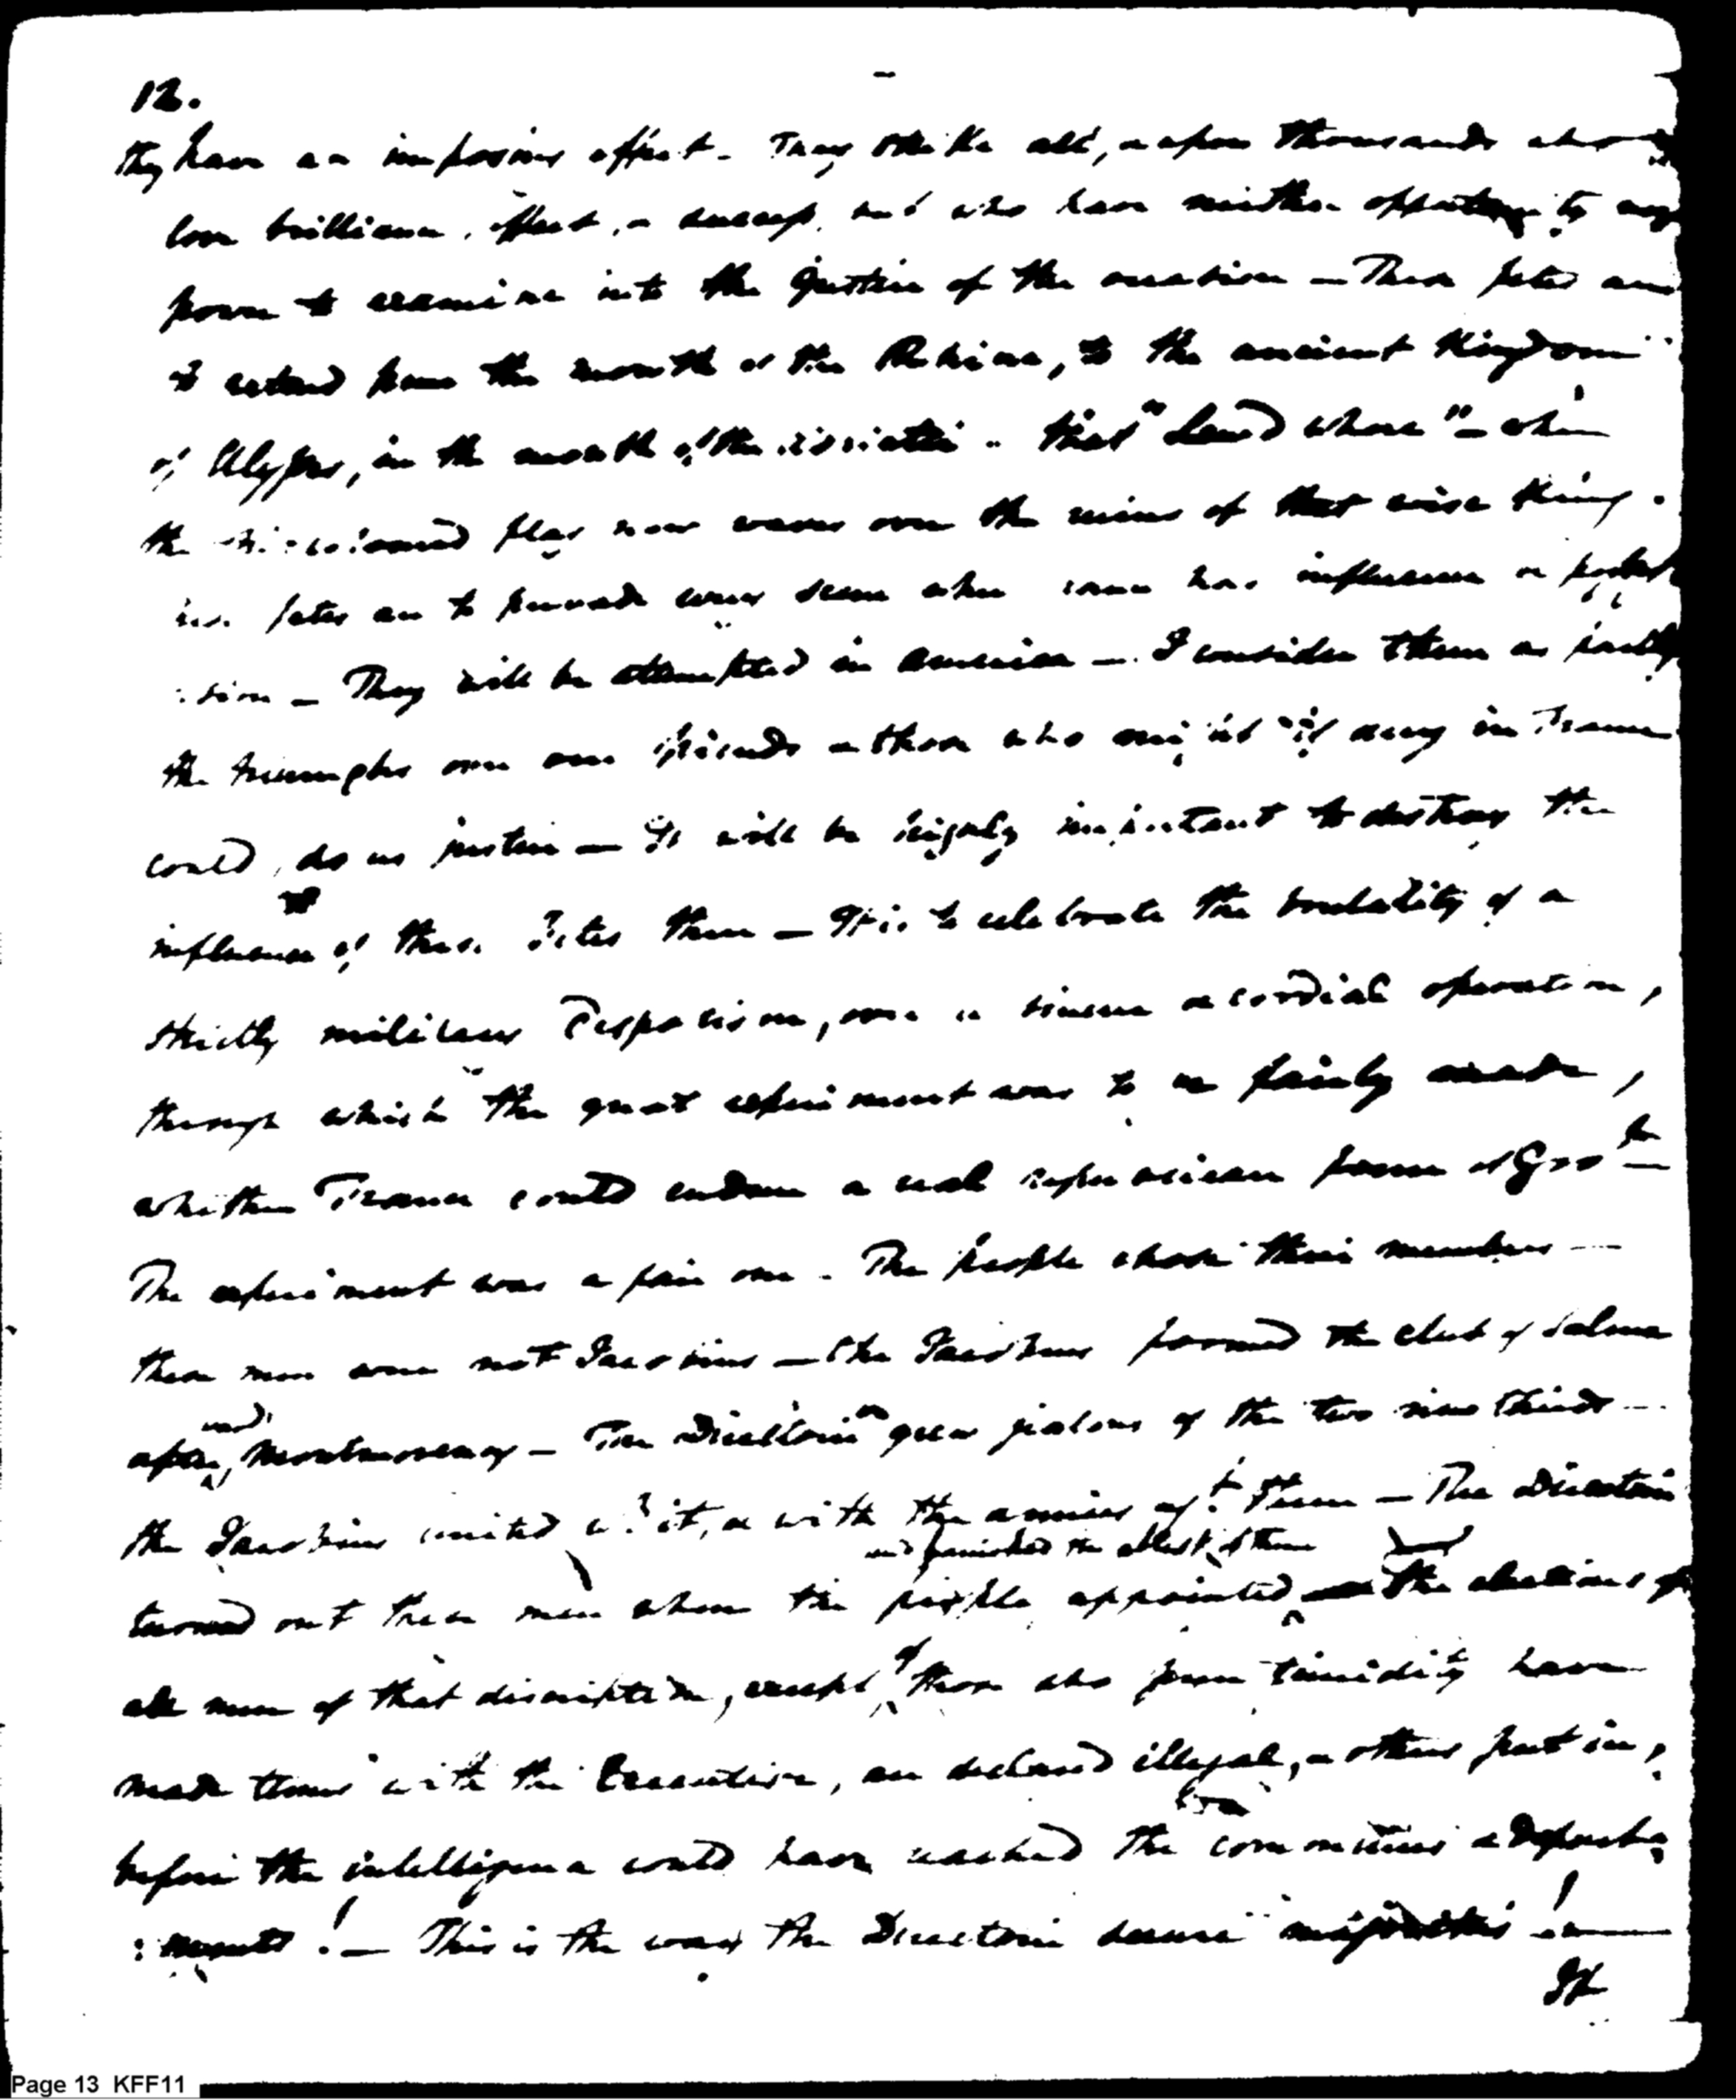 12.
they have an imposing effect. They strike all, upon thousands who
love brilliance, effect, a success, and who have neither opportunity nor
power to examine into the justice of the occasion — These fetes are
to extend from the mouth of the Rhine, to the ancient Kingdom
of Ulysses, in the mouth of the Adriatic .. that "Land where" — where
the tri-coloured flag now waves over the ruins of that wise King.
fetes are to pervade every scene where France has influence or
:sion — They will be attempted in America — I consider them as partly
the triumphs over our friends a those who might if any in France
could, do us justice — It will be highly important to destroy the
influence of these Fetes there — It is to celebrate the brutality of a
strictly military Despotism, over a sincere a cordial operation,
through which the great experiment was to be fairly made,
whether France could endure a real republican form of Govt
The experiment was a fair one. The people chose their members —
these men were not Jacobins — the Jacobins formed the club of Salms
and
after, Montmorency — The Directorie grew jealous of the two new thirds —
the Jacobins united with it, a with the armies agt them — The Directorie
and banished the ablest of them
turned out these men whom the people appointed — The elections of
of
all men of that discription, except those who from timidity have
made terms with the Executive, are declared illegal, a others put in,
before the intelligence could have reached the communes a depart:
:ments! — This is the way the Directorie secure majorities! —
It
Page 13 KFF11